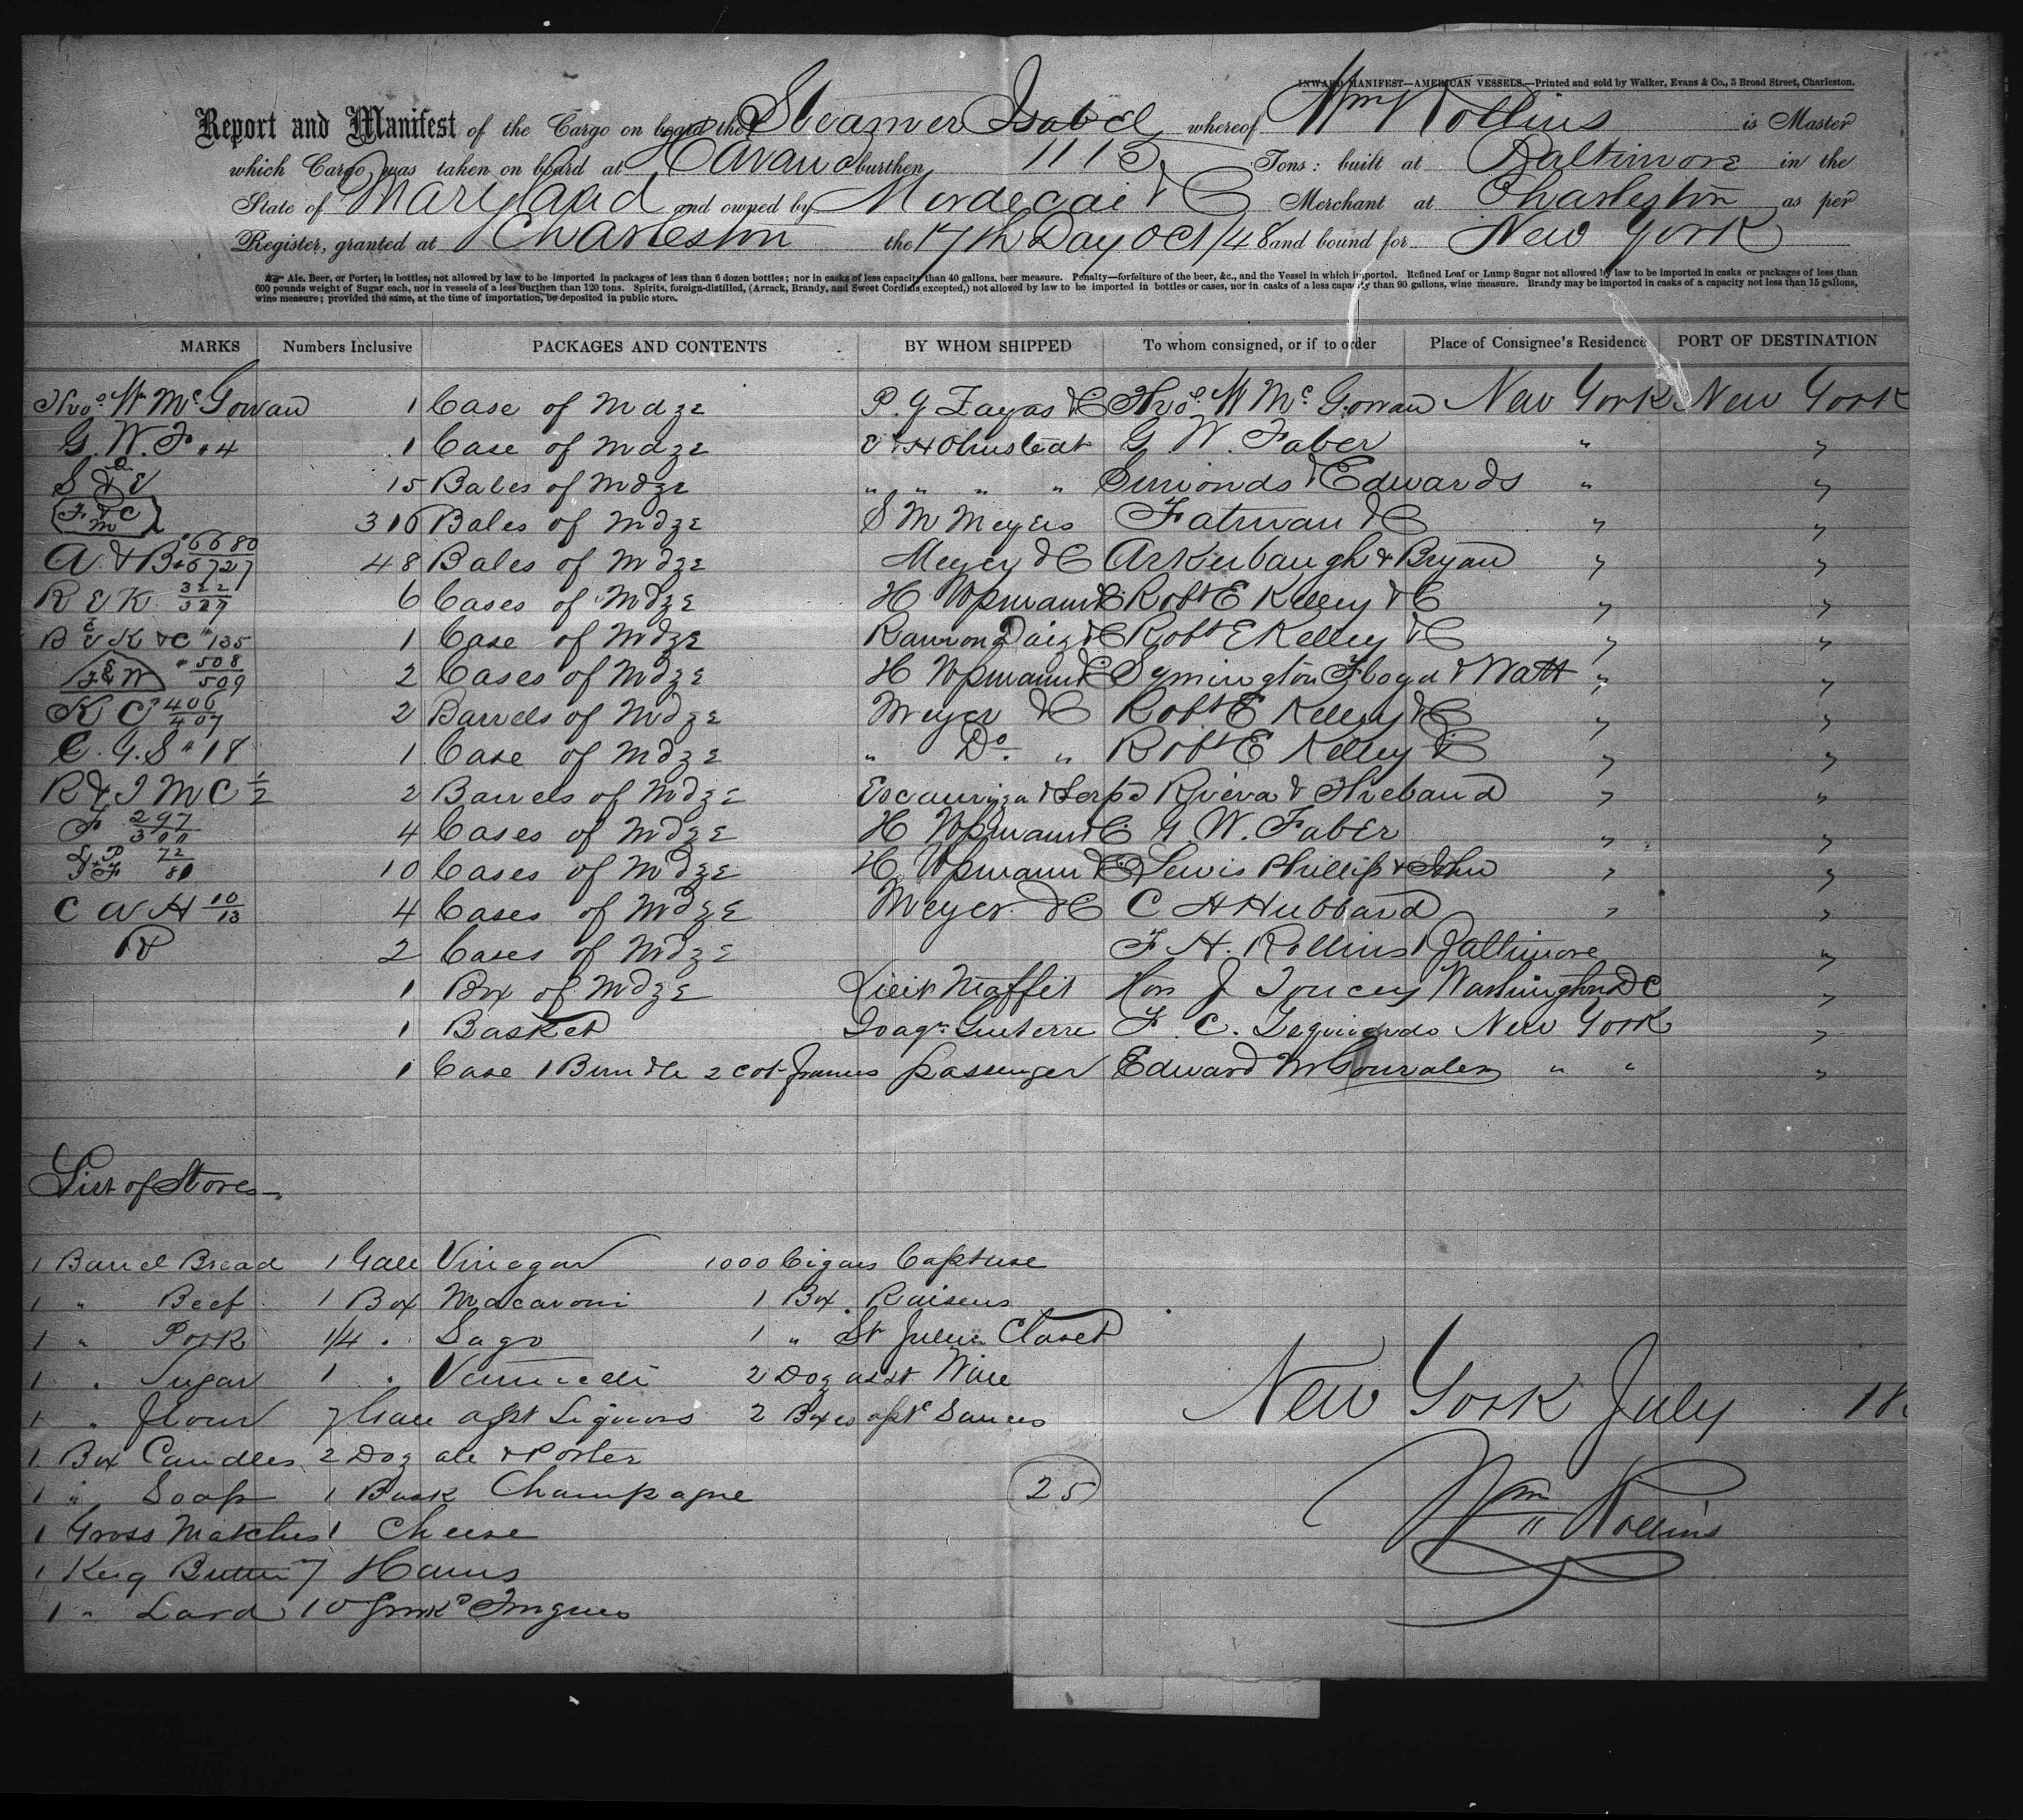 INWARD MANIFEST—AMERICAN VESSELS.—Printed and sold by Walker, Evans & Co., 3 Broad Street, Charleston.
Report and Manifest of the Cargo on board the Steamer Isabel whereof Wm Rollins is Master
which Cargo was taken on board at Havana burthen 1115 Tons: built at Baltimore in the
State of Maryland and owned by Mordecai & C Merchant at Charleston as per
Register, granted at Charleston the 17th Day Oct/48 and bound for New York
Ale, Beer, or Porter, in bottles, not allowed by law to be imported in packages of less than 6 dozen bottles; nor in casks of less capacity than 40 gallons, beer measure. Penalty—forfeiture of the beer, &c., and the Vessel in which imported. Refined Loaf or Lump Sugar not allowed by law to be imported in casks or packages of less than
600 pounds weight of Sugar each, nor in vessels of a less burthen than 120 tons. Spirits, foreign-distilled, (Arrack, Brandy, and Sweet Cordials excepted,) not allowed by law to be imported in bottles or cases, nor in casks of a less capacity than 90 gallons, wine measure. Brandy may be imported in casks of a capacity not less than 15 gallons,
wine measure; provided the same, at the time of importation, be deposited in public store.
MARKS Numbers Inclusive PACKAGES AND CONTENTS BY WHOM SHIPPED To whom consigned, or if to order Place of Consignee's Residence PORT OF DESTINATION
Thos W McGowan 1 Case of Mdze P. G Zayas & C Thos W McGowan New York New York
G. W. F #4 1 Case of Mdze G W. Faber " "
S & E 15 Bales of Mdze " " " " Simonds & Edwards " "
F & C M 316 Bales of Mdze S M Meyers Fatman & C " "
A & B #6680/6727 48 Bales of Mdze Meyer & C Arkenbaugh & Bryan " "
R E K 322/327 6 Cases of Mdze H Upmann & C Robt E Kelley & C " "
R E K & C #135 1 Case of Mdze Ramon Daiz & C Robt E Kelley & C " "
S F & W #508/509 2 Cases of Mdze H Upmann & C Symington Floyd & Watt " "
K C #406/407 2 Barrels of Mdze Meyer & C Robt E Kelley & C " "
C. G. S #18 1 Case of Mdze " Do. " Robt E Kelley & C " "
R & I M C 1/2 2 Barrels of Mdze Escauriza & Serpa Riera & Thebaud " "
F 297/300 4 Cases of Mdze H Upmann & C G W. Faber " "
L P & F 72/81 10 Cases of Mdze H. Upmann & C Lewis Phillip & John " "
C A H 10/13 4 Cases of Mdze Meyer & C C A Hubbard " "
R 2 Cases of Mdze F H. Rollins Baltimore "
1 Box of Mdze Lieut Maffit Hon J Toucey Washington DC "
1 Basket Joaqn Guterre F. C. New York "
1 Case 1 Bundle 2 cot frames passenger Edward M Gonzales " " "
List of Stores
1 Barrel Bread 1 Gall Vinegar 1000 Cigars Capt use
1 " Beef 1 Box Macaroni 1 Box Raisens
1 " Pork 1/4 " Sago 1 " St Julien Claret
1 " Sugar 1 " Vermicelli 2 Doz asst Wine
1 " Flour 7 Gall asst Liquors 2 Boxes asst Sauces New York July 18
1 Box Candles 2 Doz ale & Porter
1 " Soap 1 Bask Champagne 25
1 Gross Matches 1 Cheese Wm Rollins
1 Keg Butter 7 Hams
1 " Lard 10 Smkd Tongues